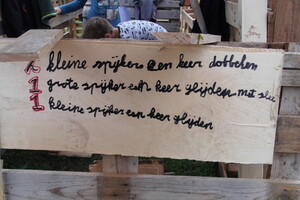 1 kleine spijker een keer dobbelen
1 grote spijker een keer glijden met slee
1 kleine spijker een keer glijden